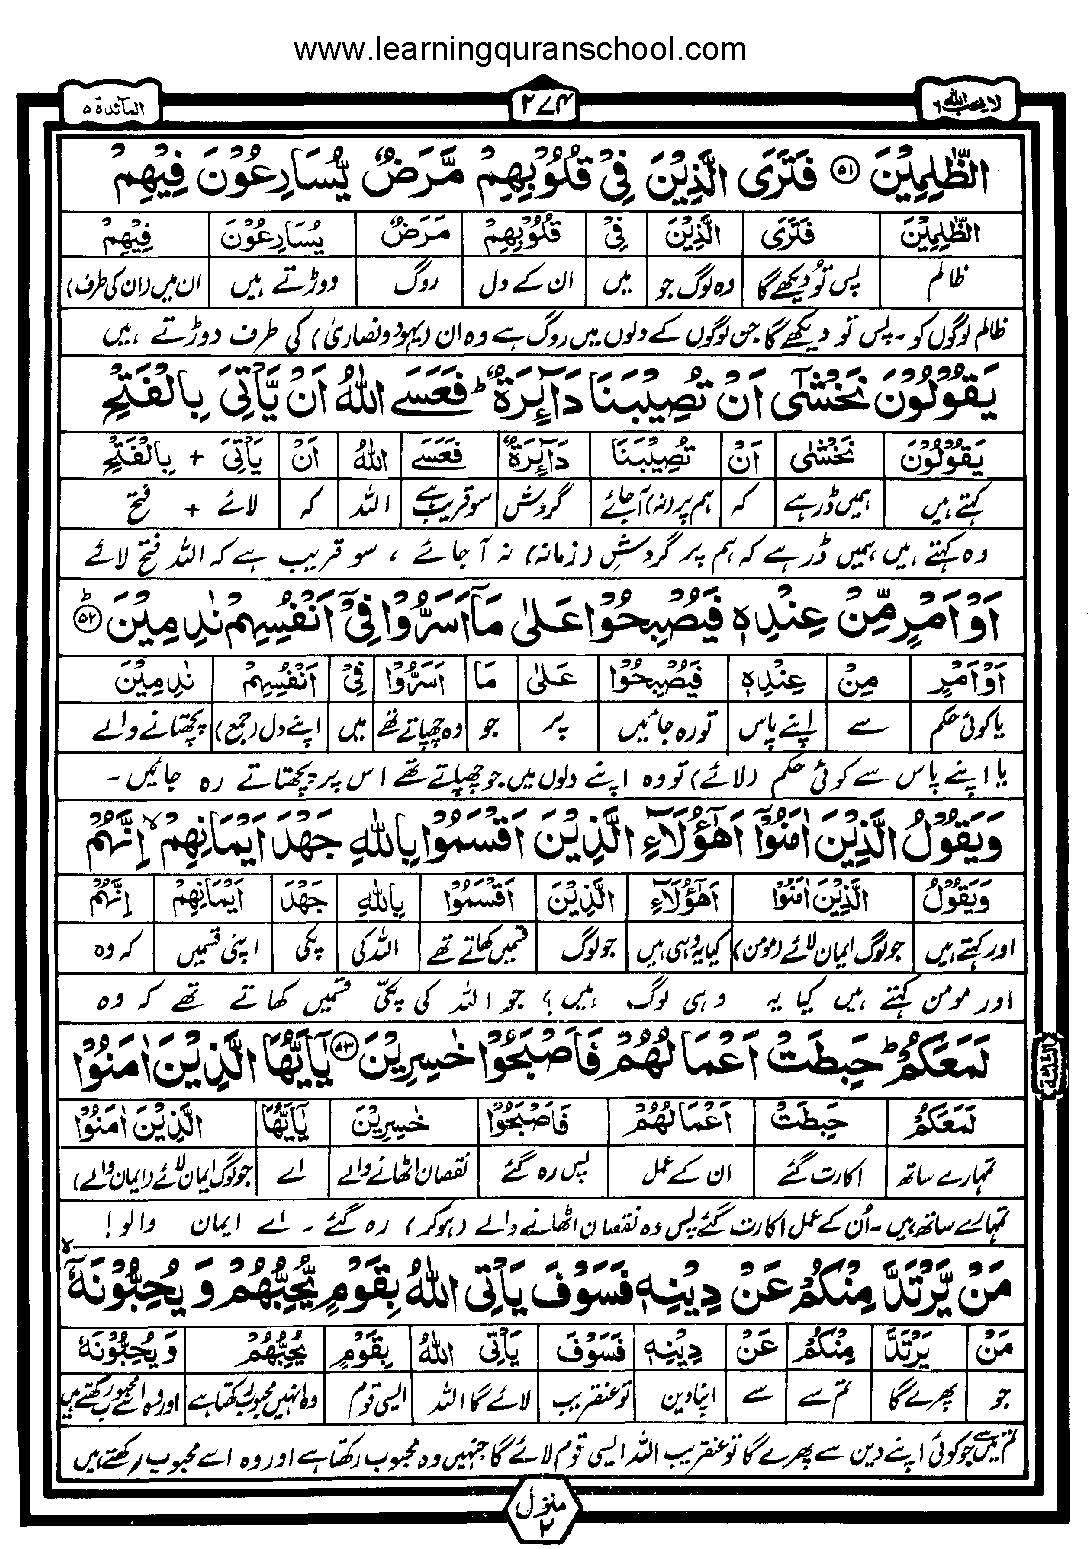 www.learningquranschool.com
لا يحب الله ٦
٢٧٤
المآئدة ٥
الظّٰلِمِيْنَ ﴿۵۱﴾ فَتَرَى الَّذِيْنَ فِيْ قُلُوْبِهِمْ مَّرَضٌ يُّسَارِعُوْنَ فِيْهِمْ
الظّٰلِمِيْنَ فَتَرَى الَّذِيْنَ فِيْ قُلُوْبِهِمْ مَرَضٌ يُسَارِعُوْنَ فِيْهِمْ
ظالم پس تو دیکھے گا وہ لوگ جو میں ان کے دل روگ دوڑتے ہیں ان میں (ان کی طرف)
ظالم لوگوں کو ۔ پس تو دیکھے گا جن لوگوں کے دلوں میں روگ ہے وہ ان (یہود و نصاریٰ) کی طرف دوڑتے ہیں
يَقُوْلُوْنَ نَخْشٰۤى اَنْ تُصِيْبَنَا دَآئِرَةٌ ؕ فَعَسَى اللّٰهُ اَنْ يَّاْتِيَ بِالْفَتْحِ
يَقُوْلُوْنَ نَخْشٰى اَنْ تُصِيْبَنَا دَآئِرَةٌ فَعَسَى اللّٰهُ اَنْ يَاْتِيَ + بِالْفَتْحِ
کہتے ہیں ہمیں ڈر ہے کہ ہم پر (نہ) آجائے گردش سو قریب ہے اللہ کہ لائے + فتح
وہ کہتے ہیں ہمیں ڈر ہے کہ ہم پر گردشِ (زمانہ) نہ آجائے ، سو قریب ہے کہ اللہ فتح لائے
اَوْ اَمْرٍ مِّنْ عِنْدِهٖ فَيُصْبِحُوْا عَلٰى مَاۤ اَسَرُّوْا فِيْۤ اَنْفُسِهِمْ نٰدِمِيْنَ ﴿۵۲﴾ؕ
اَوْ اَمْرٍ مِنْ عِنْدِهٖ فَيُصْبِحُوْا عَلٰى مَا اَسَرُّوْا فِيْ اَنْفُسِهِمْ نٰدِمِيْنَ
یا کوئی حکم سے اپنے پاس تو رہ جائیں پر جو وہ چھپاتے تھے میں اپنے دل (جمع) پچھتانے والے
یا اپنے پاس سے کوئی حکم (لائے) تو وہ اپنے دلوں میں جو چھپاتے تھے اس پر پچھتاتے رہ جائیں ۔
وَيَقُوْلُ الَّذِيْنَ اٰمَنُوْۤا اَهٰۤؤُلَآءِ الَّذِيْنَ اَقْسَمُوْا بِاللّٰهِ جَهْدَ اَيْمَانِهِمْ ۙ اِنَّهُمْ
وَيَقُوْلُ الَّذِيْنَ اٰمَنُوْا اَهٰۤؤُلَآءِ الَّذِيْنَ اَقْسَمُوْا بِاللّٰهِ جَهْدَ اَيْمَانِهِمْ اِنَّهُمْ
اور کہتے ہیں جو لوگ ایمان لائے (مومن) کیا یہ وہی ہیں جو لوگ قسمیں کھاتے تھے اللہ کی پکی اپنی قسمیں کہ وہ
اور مومن کہتے ہیں کیا یہ وہی لوگ ہیں ؟ جو اللہ کی پکّی قسمیں کھاتے تھے کہ وہ
لَمَعَكُمْ ؕ حَبِطَتْ اَعْمَالُهُمْ فَاَصْبَحُوْا خٰسِرِيْنَ ﴿۵۳﴾ يٰۤاَيُّهَا الَّذِيْنَ اٰمَنُوْا
لَمَعَكُمْ حَبِطَتْ اَعْمَالُهُمْ فَاَصْبَحُوْا خٰسِرِيْنَ يٰۤاَيُّهَا الَّذِيْنَ اٰمَنُوْا
تمہارے ساتھ اکارت گئے ان کے عمل پس رہ گئے نقصان اٹھانے والے اے جو لوگ ایمان لائے (ایمان والے)
تمہارے ساتھ ہیں ۔ اُن کے عمل اکارت گئے پس وہ نقصان اٹھانے والے (ہوکر) رہ گئے ۔ اے ایمان والو !
مَنْ يَّرْتَدَّ مِنْكُمْ عَنْ دِيْنِهٖ فَسَوْفَ يَاْتِي اللّٰهُ بِقَوْمٍ يُّحِبُّهُمْ وَيُحِبُّوْنَهٗۤ ۙ
مَنْ يَرْتَدَّ مِنْكُمْ عَنْ دِيْنِهٖ فَسَوْفَ يَاْتِي اللّٰهُ بِقَوْمٍ يُحِبُّهُمْ وَيُحِبُّوْنَهٗ
جو پھرے گا تم سے سے اپنا دین تو عنقریب لائے گا اللہ ایسی قوم وہ انہیں محبوب رکھتا ہے اور وہ اسے محبوب رکھتے ہیں
تم میں سے جو کوئی اپنے دین سے پھرے گا تو عنقریب اللہ ایسی قوم لائے گا جنہیں وہ محبوب رکھتا ہے اور وہ اسے محبوب رکھتے ہیں
منزل ٢